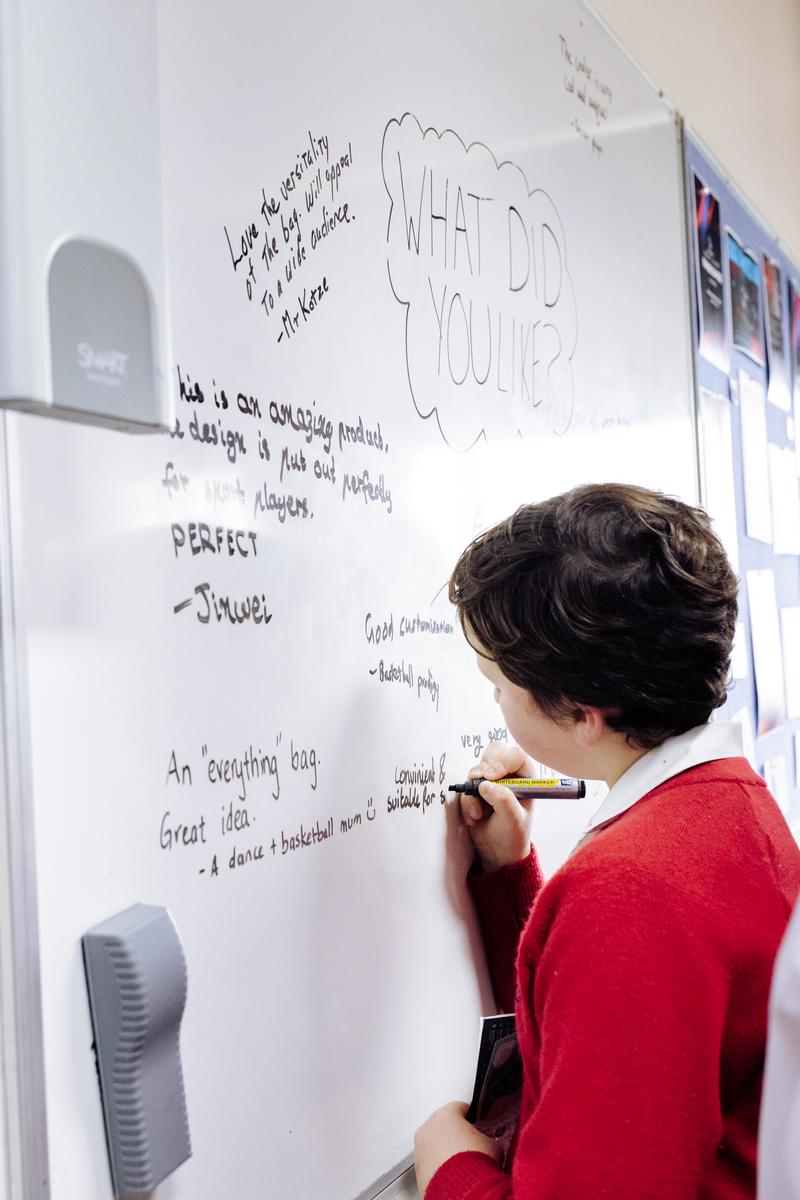 Love the versitality
of the bag. Will appeal
to a wide audience.
- Mr Kotze
WHAT DID
YOU LIKE?
SMART
his is an amazing product.
design is put out perfectly
for sport players.
PERFECT
- Jinwei
Good customisation
- Basketball prodigy
very good
An "everything" bag.
Great idea.
- A dance + basketball mum
Convinient &
suitable for s
WHITEBOARD MARKER